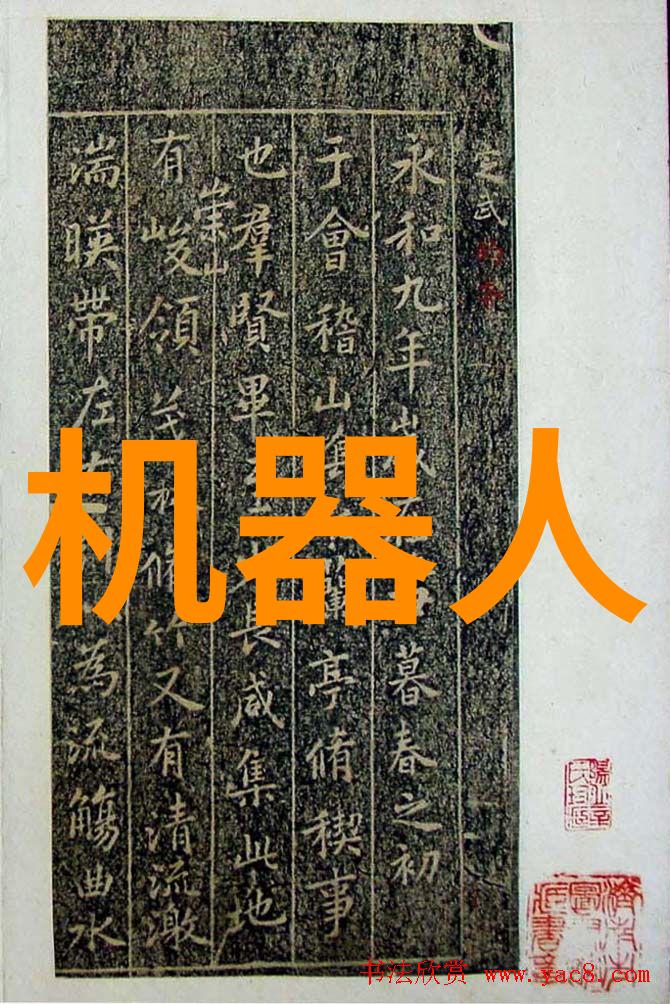 定武
永和九年歲 暮春之初
于會稽山 蘭亭脩稧事
也羣賢畢 長咸集此地
有崇山峻領茂林脩竹又有清流激
湍暎帶左 為流觴曲水
机器人
书法欣赏 www.yac8.com